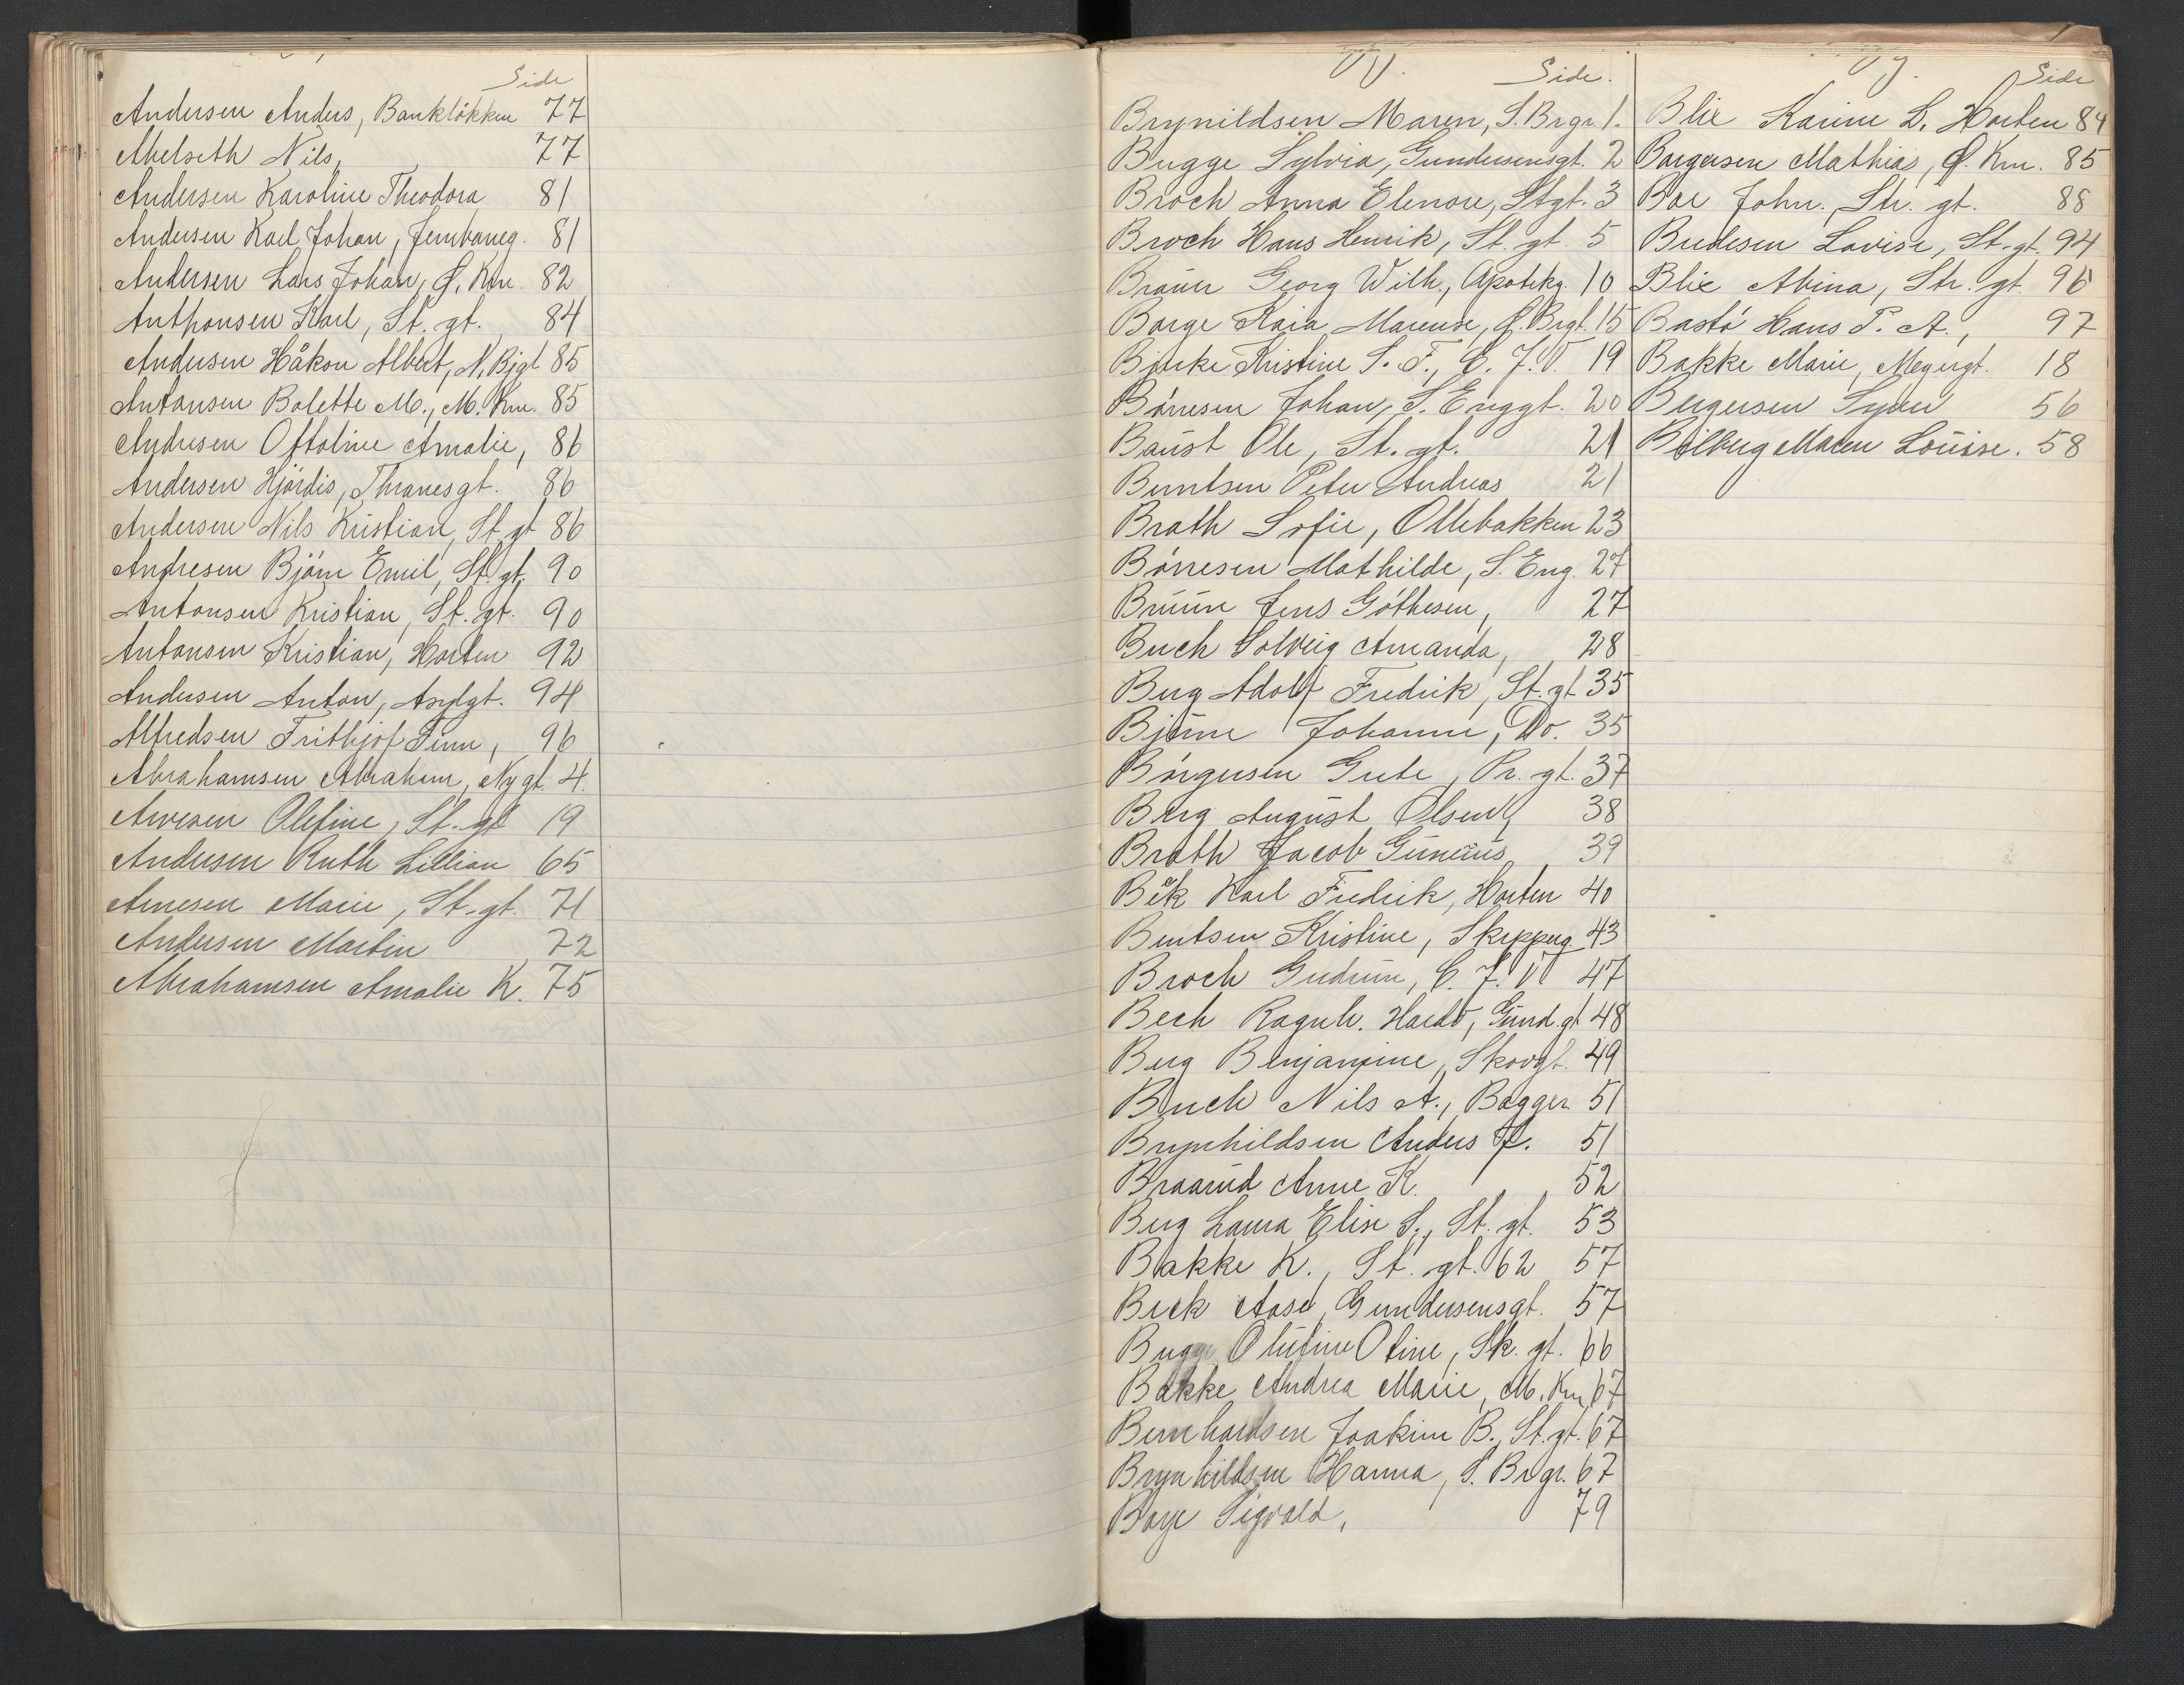 Side
Andersen Anders, Bankløkken 77
Abelseth Nils, 77
Andersen Karoline Theodora 81
Andersen Karl Johan, Jernbaneg. 81
Andersen Lars Johan, Ø. Km. 82
Anthonsen Karl, St. gt. 84
Andersen Håkon Albert, N. Bjgt 85
Antonsen Bolette M., M. Km. 85
Andresen Ottoline Amalie, 86
Andersen Hjørdis, Thranesgt. 86
Andersen Nils Kristian, St. gt 86
Andresen Bjørn Emil, St. gt. 90
Antonsen Kristian, St. gt. 90
Antonsen Kristian, Horten 92
Andersen Anton, Asylgt. 94
Alfredsen Frithjof Finn, 96
Abrahamsen Abraham, Nygt. 4.
Arvesen Olefine, St. gt 19
Andersen Ruth Lillian 65
Arnesen Marie, St. gt. 71
Andersen Martin 72
Abrahamsen Amalie K. 75
Side.
Brynildsen Maren, S. Brgr. 1.
Bugge Sylvia, Gundersensgt. 2
Broch Anna Elenore, Stgt. 3
Broch Hans Henrik, St. gt. 5
Braüer Georg Wilh., Apotekg. 10
Borge Kaia Marense, Ø. Brgt. 15
Bjerke Kristine S. F., C. J. V. 19
Børresen Johan, S. Enggt. 20
Baust Ole, St. gt. 21
Berntsen Peter Andreas 21
Brath Sofie, Ollebakken 23
Børresen Mathilde, S. Eng. 27
Bruün Jens Gøthesen, 27
Buch Solveig Amanda, 28
Berg Adolf Fredrik, St. gt 35
Bjønne Johanne, Do. 35
Børgesen Grete, Pr. gt. 37
Berg August Olsen, 38
Brath Jacob Gunerius 39
Bek Karl Fredrik, Horten 40
Bentsen Kristine, Skipperg. 43
Broch Gudrun, C. J. V 47
Bech Ragnh. Hardt, Gund. gt 48
Berg Benjamine, Skovgt. 49
Buch Nils A., Bagger 51
Brynhildsen Anders J. 51
Braarud Anne K. 52
Berg Laura Elise S., St. gt. 53
Bakke K., St. gt. 62 57
Beck Aase, Gundersensgt. 57
Bugge Olufine Otine, Sk. gt. 66
Bakke Andrea Marie, M. Km 67
Bernhardsen Joakim B., St. gt. 67
Brynhildsen Hanna, S. Brgr. 67
Boye Sigvald, 79
Side
Blix Karine L. Horten 84
Borgersen Mathias, Ø. Km. 85
Boe John. Str. gt. 88
Bredesen Lovise, St. gt. 94
Blix Albina, Str. gt. 96
Bastø Hans P. A., 97
Bakke Marie, Meyergt. 18
Bergersen Syver 56
Bilberg Maren Louise. 58